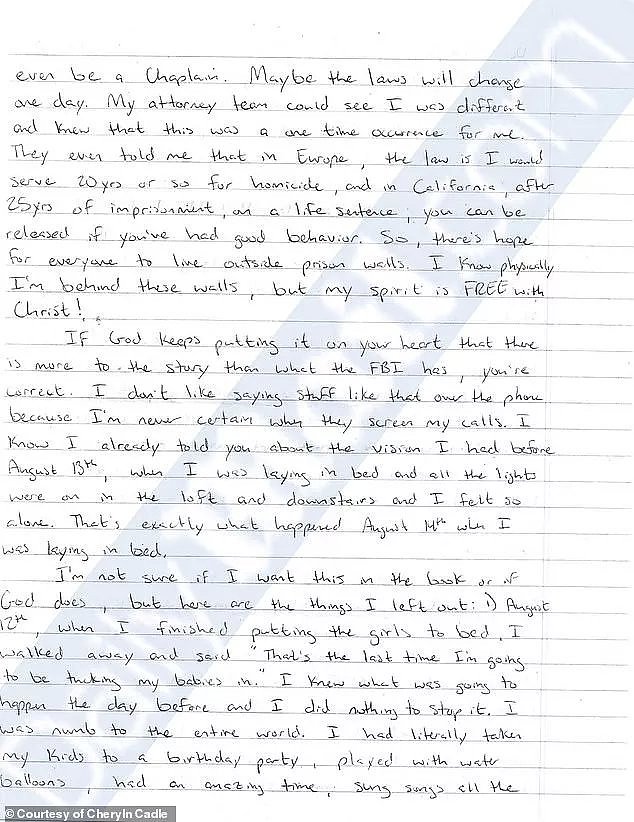 even be a Chaplain. Maybe the laws will change
one day. My attorney team could see I was different
and knew that this was a one time occurrence for me.
They even told me that in Europe, the law is I would
serve 20yrs or so for homicide, and in California, after
25yrs of imprisonment, on a life sentence, you can be
released if you've had good behavior. So, there's hope
for everyone to live outside prison walls. I know physically
I'm behind these walls, but my spirit is FREE with
Christ!
If God keeps putting it on your heart that there
is more to the story than what the FBI has, you're
correct. I don't like saying stuff like that over the phone
because I'm never certain when they screen my calls. I
know I already told you about the vision I had before
August 13th, when I was laying in bed and all the lights
were on in the loft and downstairs and I felt so
alone. That's exactly what happened August 14th when I
was laying in bed.
I'm not sure if I want this in the book or if
God does, but here are the things I left out: 1) August
12th, when I finished putting the girls to bed, I
walked away and said "That's the last time I'm going
to be tucking my babies in." I knew what was going to
happen the day before and I did nothing to stop it. I
was numb to the entire world. I had literally taken
my kids to a birthday party, played with water
balloons, had an amazing time, sung songs all the
© Courtesy of Cheryln Cadle